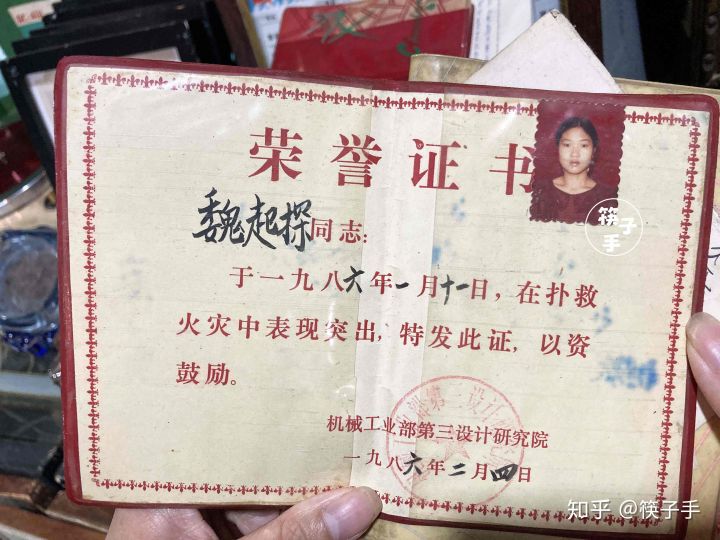 荣誉证书
魏起探同志：
于一九八六年一月十一日，在扑救
火灾中表现突出，特发此证，以资
鼓励。
机械工业部第三设计研究院
一九八六年二月四日
筷子手
知乎 @筷子手